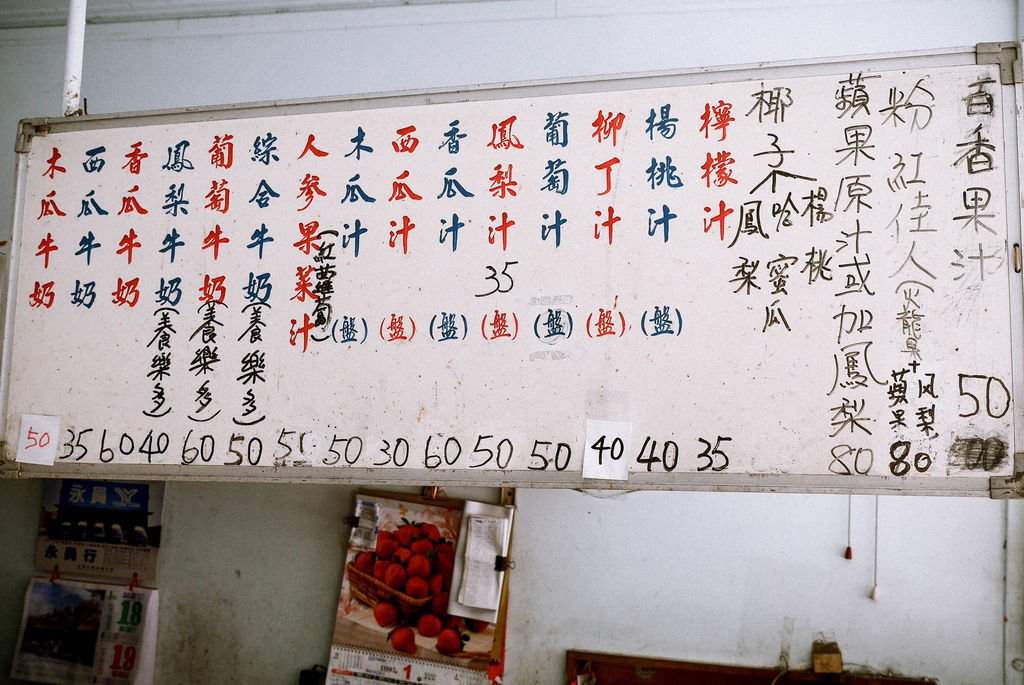 百香果汁 50
粉紅佳人(火龍果+蘋果风梨 80
蘋果原汁或加鳳梨 80
椰子
楊桃
哈蜜瓜
鳳梨
檸檬汁 35
楊桃汁 (盤) 40
柳丁汁 (盤) 40
葡萄汁 (盤) 50
鳳梨汁 35 (盤) 50
香瓜汁 (盤) 60
西瓜汁 (盤) 30
木瓜汁 (盤) 50
人參果菜汁 (紅蘿蔔)
綜合牛奶 (養樂多) 50
葡萄牛奶 (養樂多) 60
鳳梨牛奶 (養樂多) 40
香瓜牛奶 60
西瓜牛奶 35
木瓜牛奶 50
永員
永員行
18
19
1